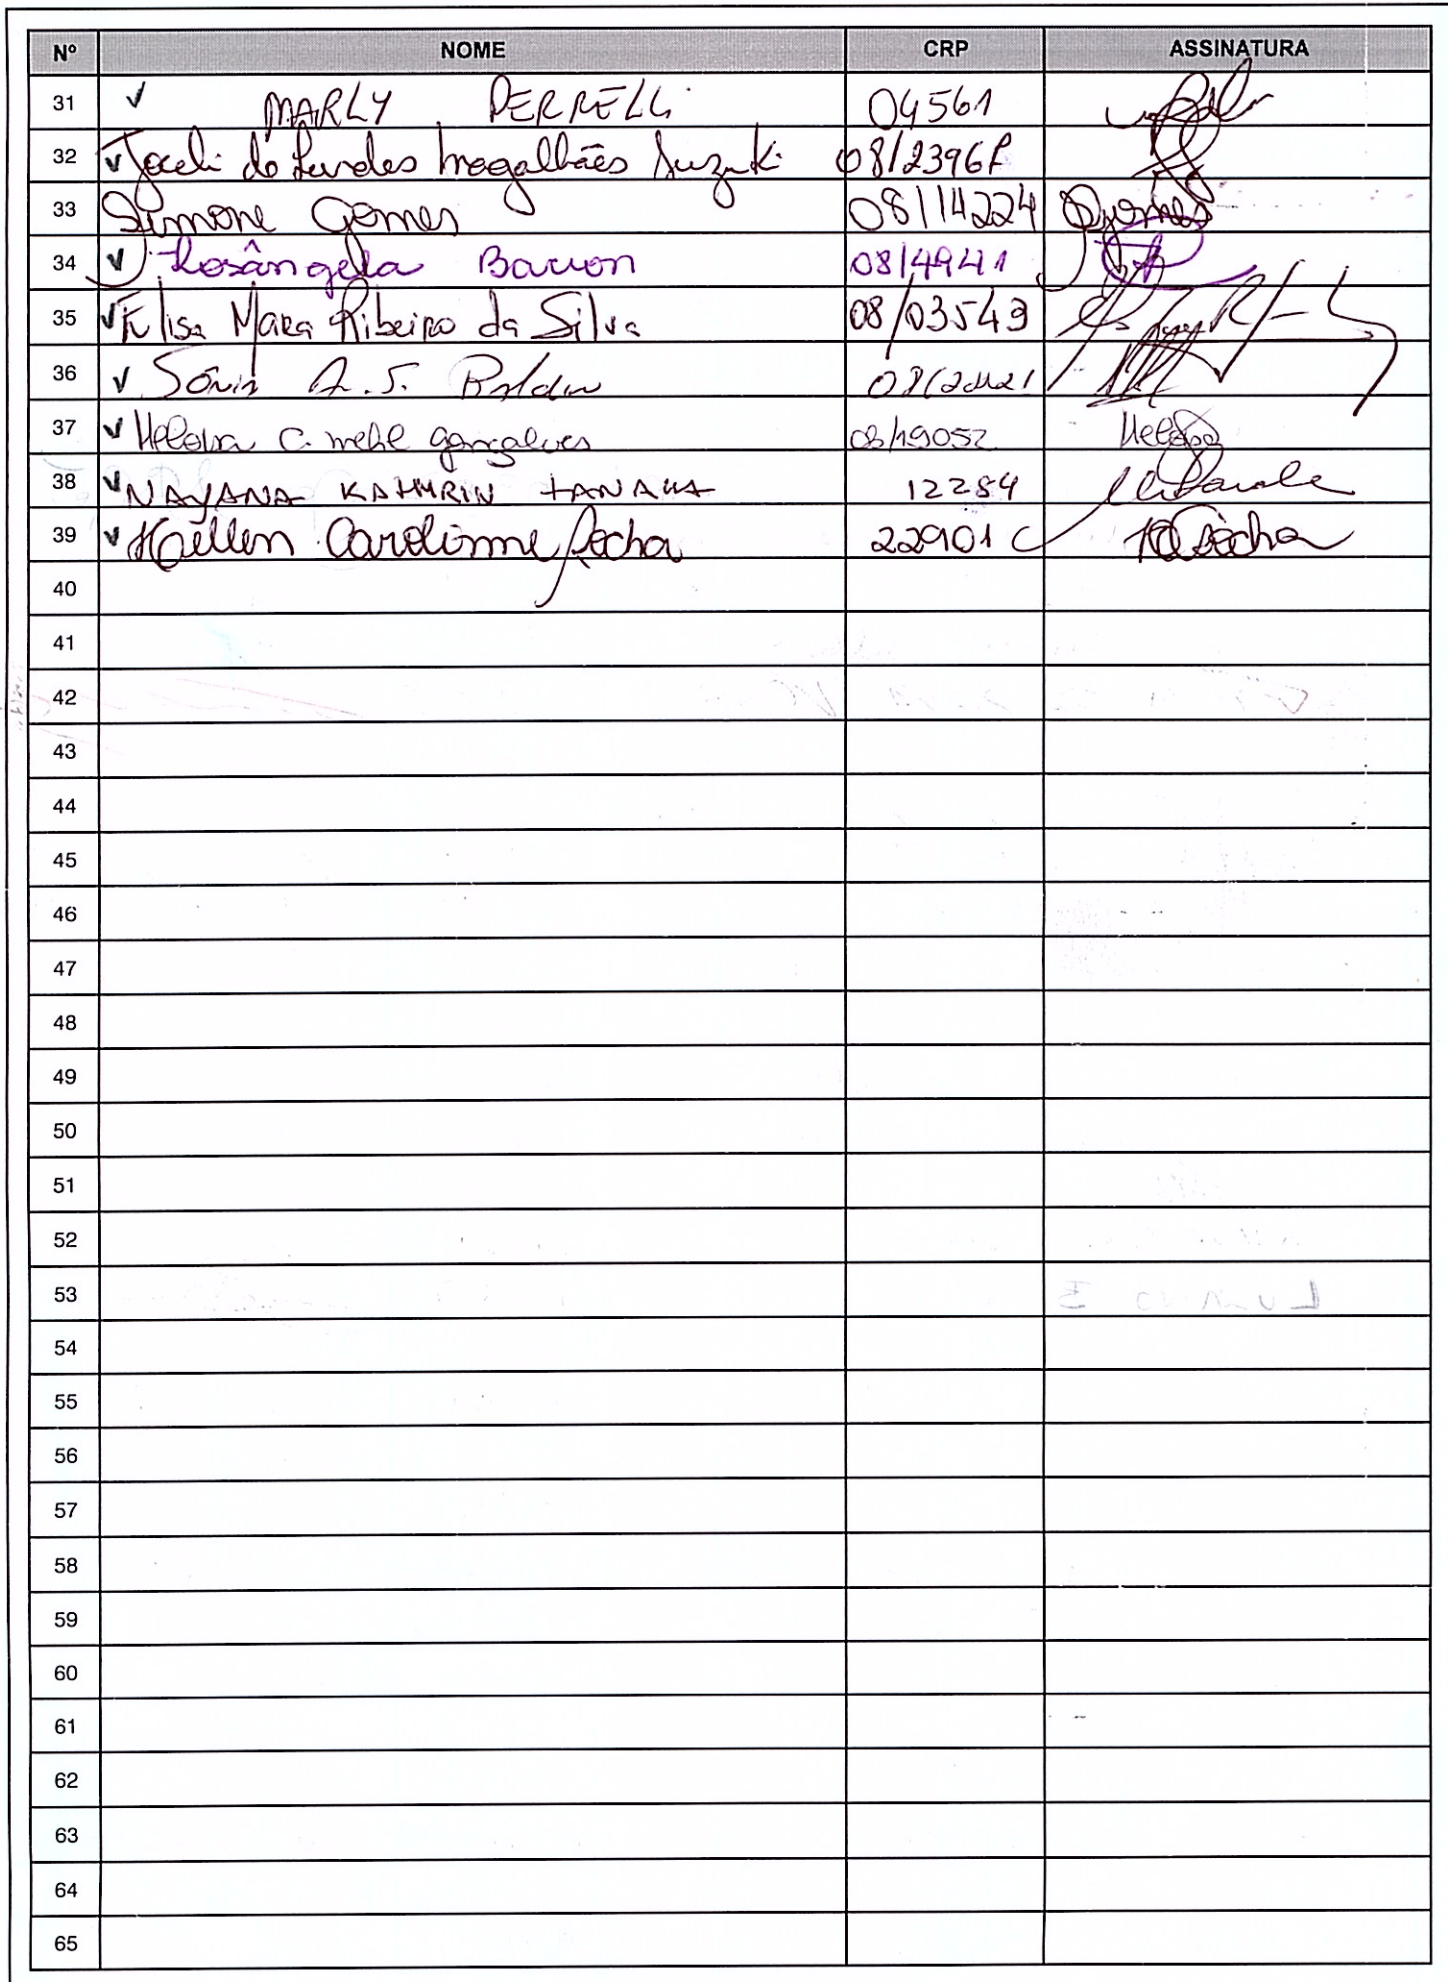 Nº NOME CRP ASSINATURA
31 ✓ MARLY PERRELLI 04561
32 ✓ Joceli de Lurdes Magalhães Suzuki 08/2396P
33 Simone Gomes 08/14224 SGomes
34 ✓ Rosângela Barron 08/4941
35 ✓ Elisa Mara Ribeiro da Silva 08/03549
36 ✓ Sônia A. S.
37 ✓ Heloisa C. Mehl Gonçalves 08/19052 Heloisa
38 ✓ NAYANA KATHRIN TANAKA 12284
39 ✓ Hellen Carolinne Rocha 22901 HCRocha
40
41
42
43
44
45
46
47
48
49
50
51
52
53
54
55
56
57
58
59
60
61
62
63
64
65